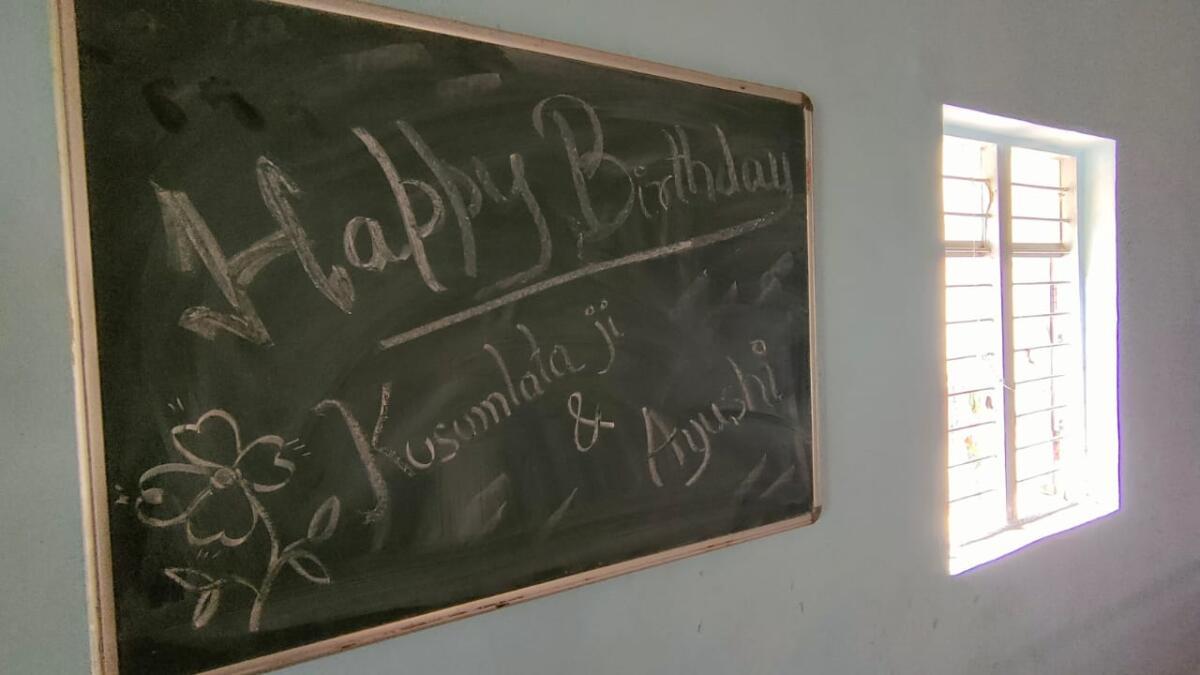 Happy Birthday
Kusumlata ji
& Ayushi